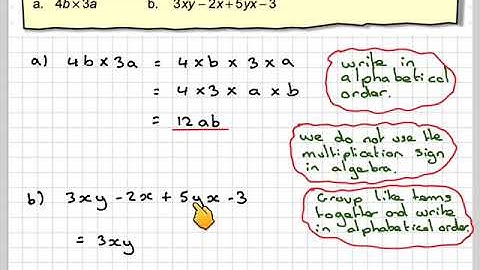 a. 4b × 3a b. 3xy – 2x + 5yx – 3
a) 4b × 3a = 4 × b × 3 × a
= 4 × 3 × a × b
= 12ab
write in
alphabetical
order.
we do not use the
multiplication sign
in algebra.
b) 3xy - 2x + 5yx - 3
= 3xy
Group like terms
together and write
in alphabetical order.